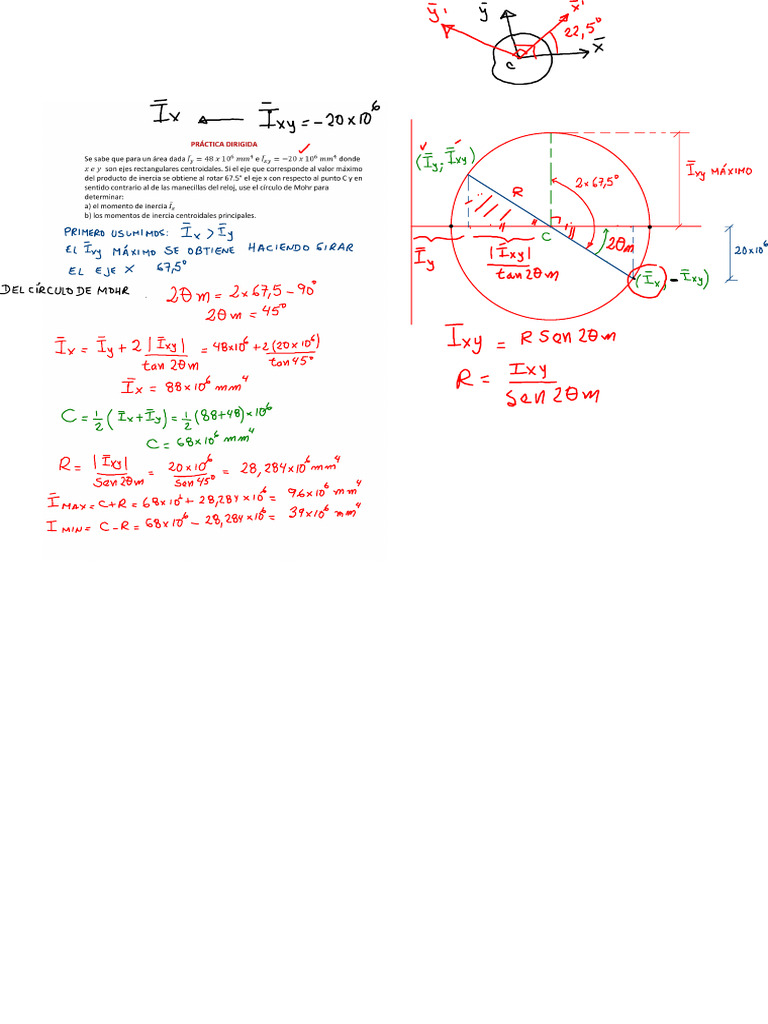 ȳ'
ȳ
x̄'
22,5°
x̄
c
Īx ← Īxy = -20x10⁶
PRÁCTICA DIRIGIDA
Se sabe que para un área dada Īy = 48 x 10⁶ mm⁴ e Īxy = −20 x 10⁶ mm⁴ donde
x e y son ejes rectangulares centroidales. Si el eje que corresponde al valor máximo
del producto de inercia se obtiene al rotar 67.5° el eje x con respecto al punto C y en
sentido contrario al de las manecillas del reloj, use el círculo de Mohr para
determinar:
a) el momento de inercia Īx
b) los momentos de inercia centroidales principales.
PRIMERO USUMIMOS: Īx > Īy
EL Īxy MÁXIMO SE OBTIENE HACIENDO GIRAR
EL EJE X 67,5°
DEL CÍRCULO DE MOHR . 2θm = 2x67,5 - 90°
2θm = 45°
Īx = Īy + 2|Īxy| / tan2θm = 48x10⁶ + 2(20x10⁶) / tan45°
Īx = 88x10⁶ mm⁴
C = 1/2 (Īx + Īy) = 1/2 (88+48)x10⁶
C = 68x10⁶ mm⁴
R = |Īxy| / Sen2θm = 20x10⁶ / Sen45° = 28,284x10⁶ mm⁴
Ī MAX = C+R = 68x10⁶ + 28,284x10⁶ = 96x10⁶ mm⁴
I MIN = C-R = 68x10⁶ - 28,284x10⁶ = 39x10⁶ mm⁴
(Īy; Īxy)
R
2x67,5°
Īxy MÁXIMO
C
2θm
20x10⁶
Īy
|Īxy| / tan2θm
(Īx, -Īxy)
Ixy = R Sen2θm
R = Ixy / Sen2θm